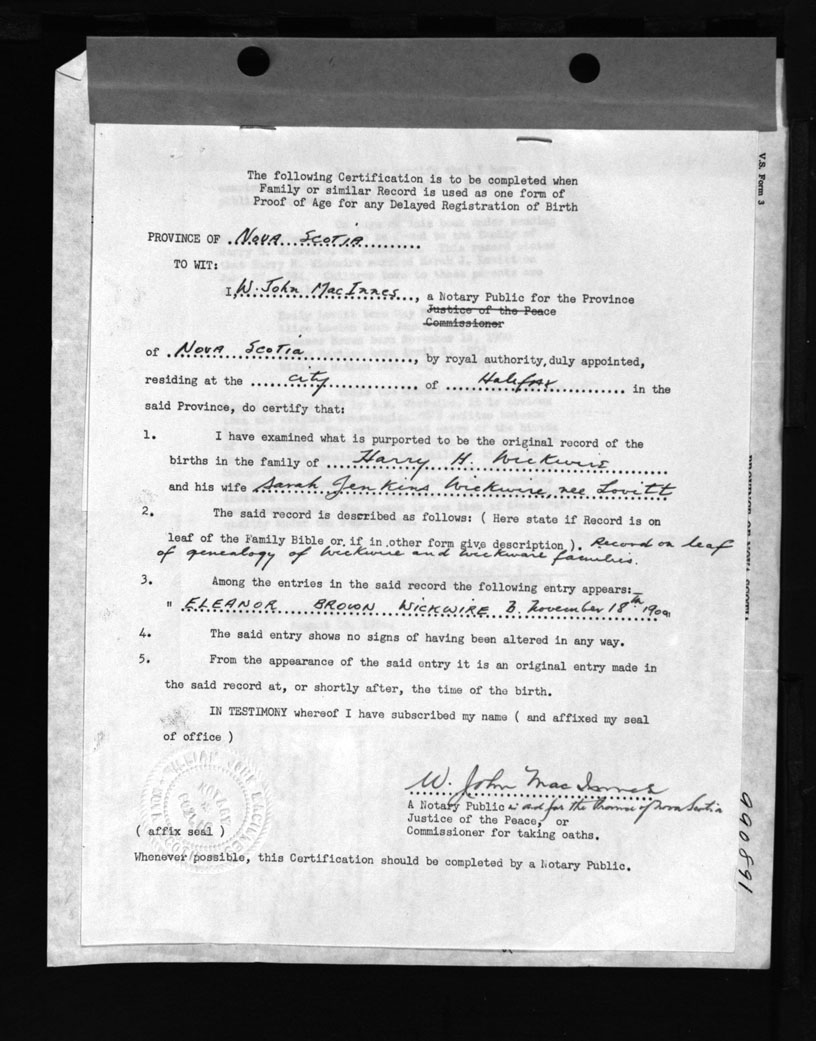 The following Certification is to be completed when
Family or similar Record is used as one form of
Proof of Age for any Delayed Registration of Birth
V.S. Form 3
PROVINCE OF Nova Scotia
TO WIT:
I, W. John MacInnes, a Notary Public for the Province
Justice of the Peace
Commissioner
of Nova Scotia, by royal authority, duly appointed,
residing at the city of Halifax in the
said Province, do certify that:
1. I have examined what is purported to be the original record of the
births in the family of Harry H. Wickwire
and his wife Sarah Jenkins Wickwire nee Lovitt
2. The said record is described as follows: ( Here state if Record is on
leaf of the Family Bible or if in other form give description ). Record on leaf
of genealogy of Wickwire and Wickware families.
3. Among the entries in the said record the following entry appears:
" ELEANOR BROWN WICKWIRE B. November 18th 1900
4. The said entry shows no signs of having been altered in any way.
5. From the appearance of the said entry it is an original entry made in
the said record at, or shortly after, the time of the birth.
IN TESTIMONY whereof I have subscribed my name ( and affixed my seal
of office )
W. John MacInnes
A Notary Public in and for the Province of Nova Scotia
Justice of the Peace, or
Commissioner for taking oaths.
NOTARY
( affix seal )
Whenever possible, this Certification should be completed by a Notary Public.
990891